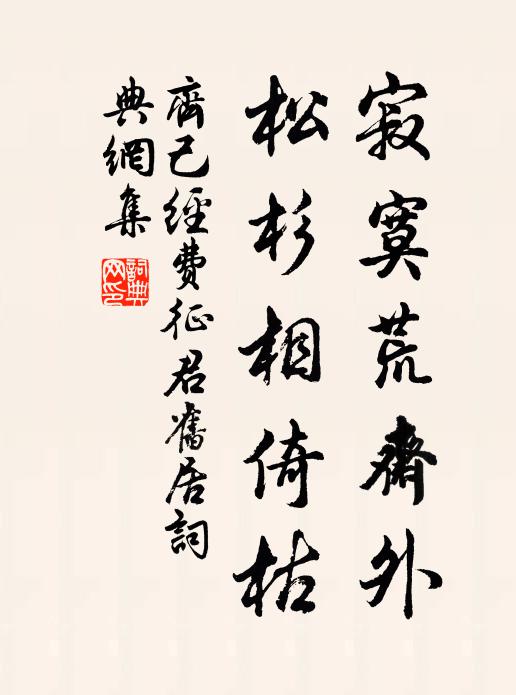 寂寞荒齋外
松杉相倚枯
齊己經費征君舊居詞
典網集
詞典
网印